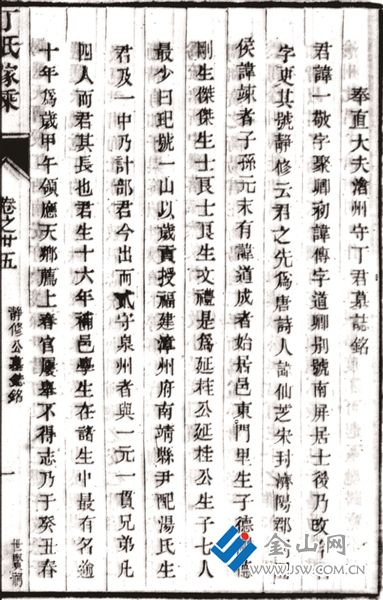 奉直大夫澹州守丁君墓誌銘
君諱一敬字聚卿初諱傳字道卿別號南屏居士後乃改
字更其號靜修云君之先為唐詩人諱仙芝宋封濟陽郡
侯諱竦者子孫元末有諱道成者始居邑東門里生子德
剛生傑傑生士良士良生文禮是為延桂公延桂公生子七人
最少曰玘號一山以歲貢授福建漳州府南靖縣尹配湯氏生
君及一中乃計部君今出而貳守泉州者與一元一貫兄弟凡
四人而君其長也君生十六年補邑學生在諸生中最有名逾
十年為歲甲午領應天鄉薦上春官屢舉不得志乃于癸丑春
丁氏家乘
卷之廿五
靜修公墓誌銘
一
世賢
金山网
WWW.JSW.COM.CN